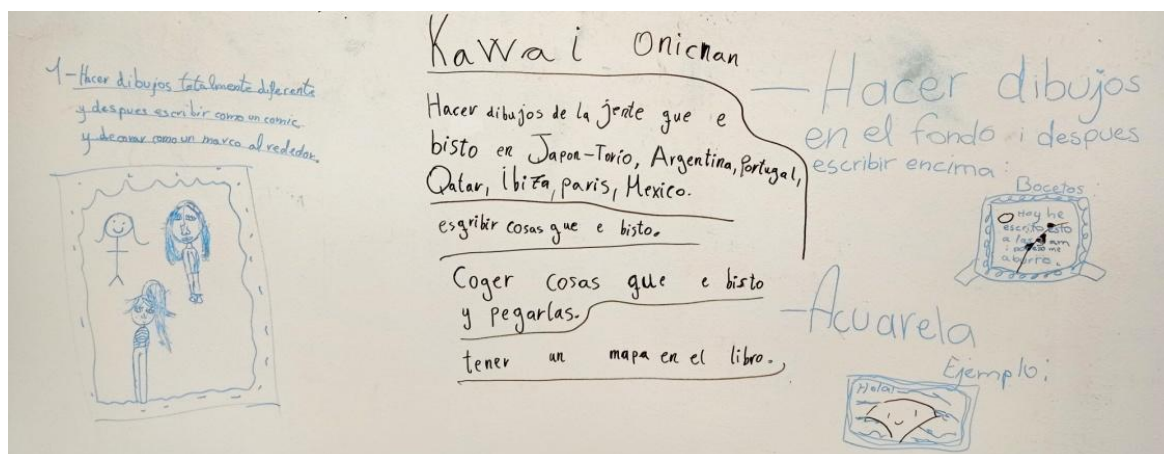 1-Hacer dibujos totalmente diferente
y despues escribir como un comic
y decorar como un marco alrededor.
Kawai Onichan
Hacer dibujos de la jente que e
bisto en Japon-Torio, Argentina, Portugal,
Qatar, Ibiza, paris, Mexico.
esgribir cosas que e bisto.
Coger cosas que e bisto
y pegarlas.
tener un mapa en el libro.
-Hacer dibujos
en el fondo i despues
escribir encima:
Bocetos:
Hoy he
escrito esto
a las am
aburro.
-Acuarela
Ejemplo:
Hola!